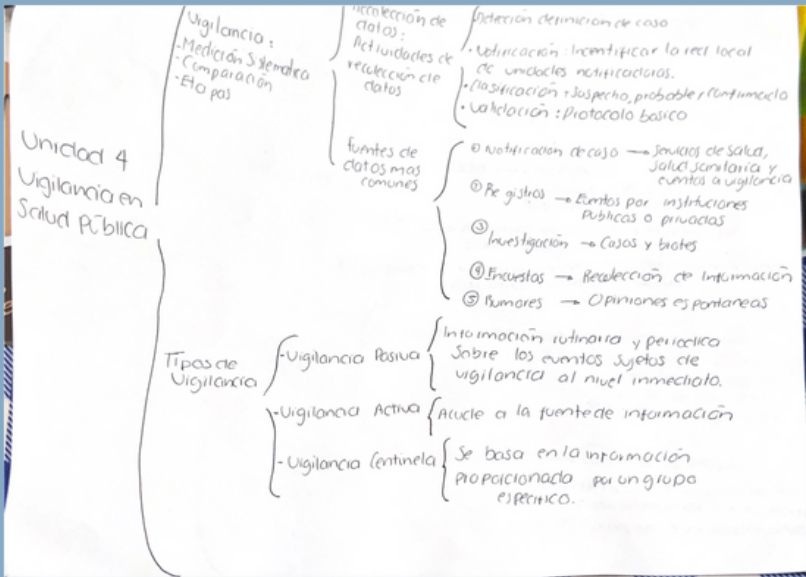 Unidad 4
Vigilancia en
Salud Pública
Vigilancia:
-Medición Sistematica
-Comparación
-Etapas
recolección de
datos:
Actividades de
recolección de
datos
Detección definicion de caso
• Notificación: Incentificar la red local
de unidades notificadoras.
• Clasificación: Sospecho, probable, confirmado
• Validación: Protocolo basico
fuentes de
datos mas
comunes
① Notificación de caso → Servicios de Salud,
salud sanitaria y
eventos a vigilancia
① Registros → Eventos por instituciones
Publicas o privadas
③ Investigación → Casos y brotes
④ Encuestas → Recolección de información
⑤ Rumores → Opiniones espontaneas
Tipos de
Vigilancia
-Vigilancia Pasiva
Información rutinaria y periodica
Sobre los eventos sujetos de
vigilancia al nivel inmediato.
-Vigilancia Activa
Acude a la fuente de información
-Vigilancia Centinela
Se basa en la información
proporcionada por un grupo
especifico.